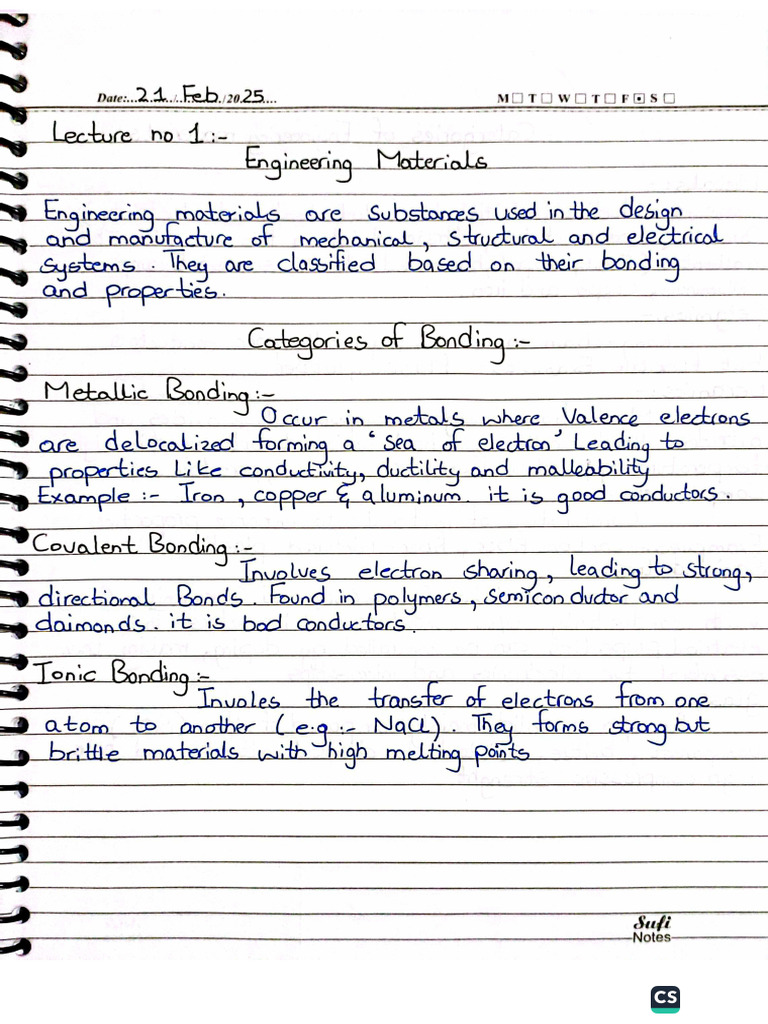 Date:...21../..Feb../2025....
M☐ T☐ W☐ T☐ F☑ S☐
Lecture no 1:-
Engineering Materials
Engineering materials are substances used in the design
and manufacture of mechanical, structural and electrical
systems. They are classified based on their bonding
and properties.
Categories of Bonding:-
Metallic Bonding:-
Occur in metals where Valence electrons
are delocalized forming a 'sea of electron' Leading to
properties Like conductivity, ductility and malleability
Example :- Iron, copper & aluminum. it is good conductors.
Covalent Bonding:-
Involves electron sharing, leading to strong,
directional Bonds. Found in polymers, semiconductor and
daimonds. it is bad conductors.
Ionic Bonding:-
Involes the transfer of electrons from one
atom to another (e.g:- NaCl). They forms strong but
brittle materials with high melting points
Sufi
Notes
CS